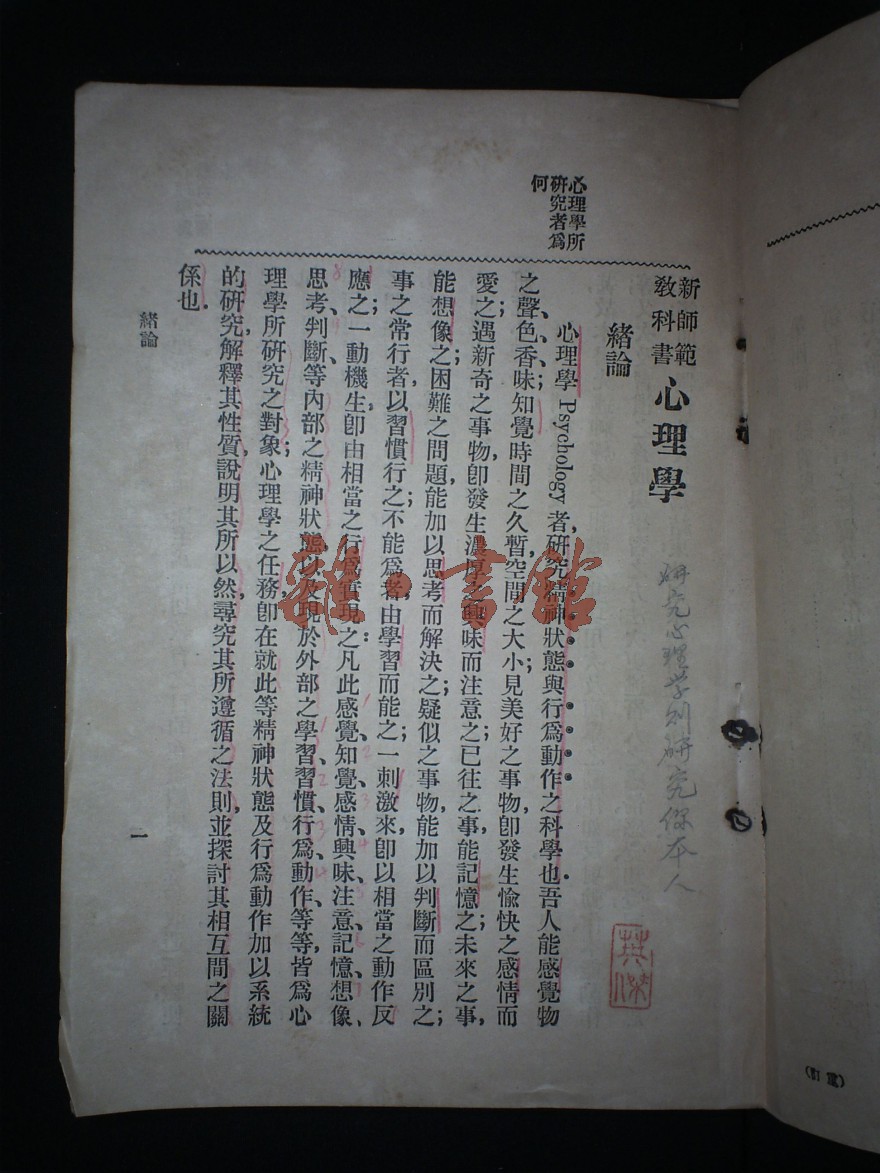 新師範
教科書
心理學
研究心理学則研究你本人
緒論
心理學所
硏究者爲
何
心理學 Psychology 者,硏究精神狀態與行爲動作之科學也.吾人能感覺物
之聲、色、香、味;知覺時間之久暫,空間之大小;見美好之事物,卽發生愉快之感情而
愛之;遇新奇之事物,卽發生濃厚之興味而注意之;已往之事,能記憶之;未來之事,
能想像之;困難之問題,能加以思考而解決之;疑似之事物,能加以判斷而區別之;
事之常行者,以習慣行之;不能爲者,由學習而能之;一刺激來,卽以相當之動作反
應之;一動機生,卽由相當之行爲實現之:凡此感覺、知覺、感情、興味、注意、記憶、想像、
思考、判斷、等內部之精神狀態,以及現於外部之學習、習慣、行爲、動作、等等,皆爲心
理學所硏究之對象;心理學之任務,卽在就此等精神狀態及行爲動作加以系統
的硏究,解釋其性質,說明其所以然,尋究其所遵循之法則,並探討其相互間之關
係也.
緒論
一
雜·書館